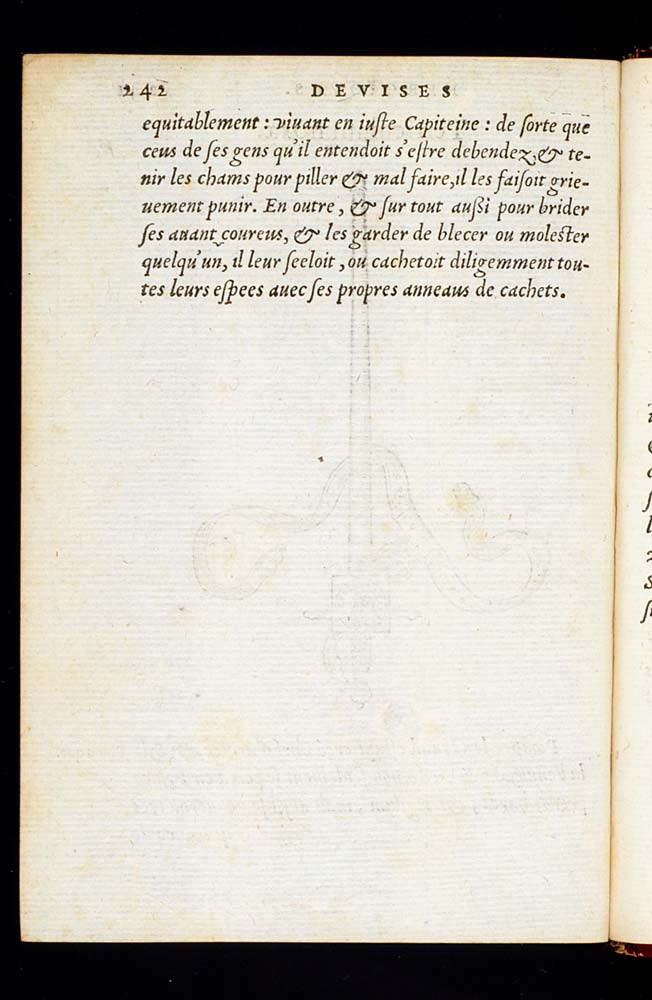 242 DEVISES
equitablement : viuant en iuste Capiteine : de sorte que
ceus de ses gens qu'il entendoit s'estre debendez, & te-
nir les chams pour piller & mal faire, il les faisoit grie-
uement punir. En outre, & sur tout außi pour brider
ses auant coureus, & les garder de blecer ou molester
quelqu'un, il leur seeloit, ou cachetoit diligemment tou-
tes leurs espees auec ses propres anneaus de cachets.